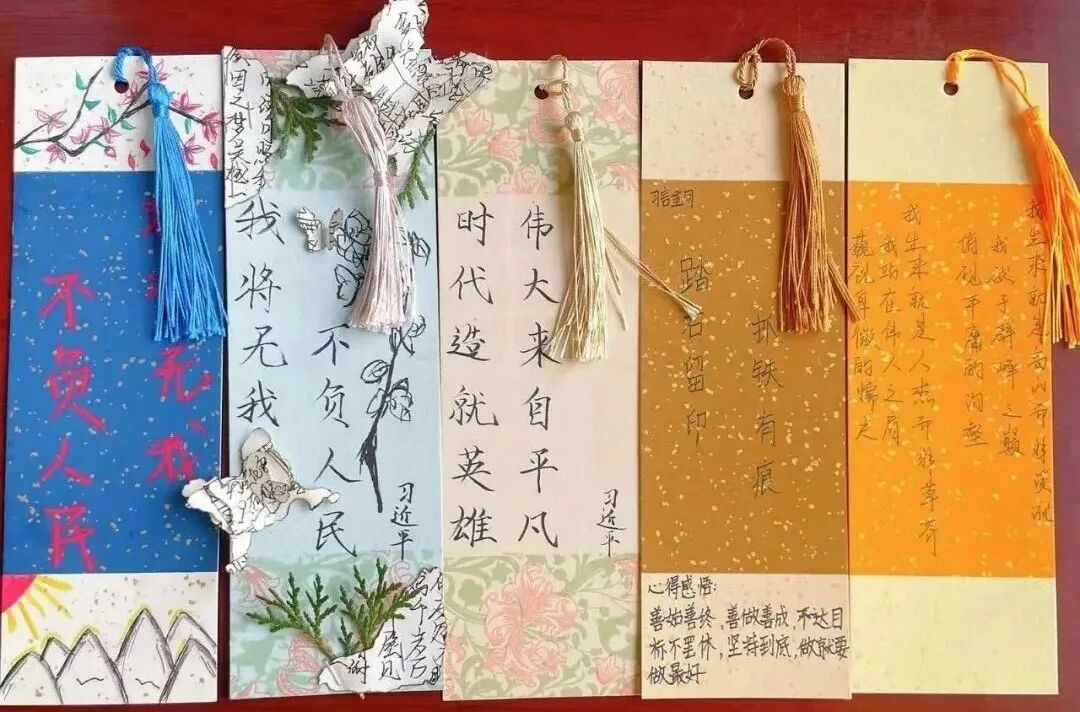 无、我
不负人民
我将无我
不负人民
习近平
伟大来自平凡
时代造就英雄
习近平
抓铁有痕
踏石留印
心得感悟:
善始善终,善做善成,不达目
标不罢休,坚持到底,做就要
做最好
我生来就是高山而非溪流
我欲于群峰之巅
俯视平庸的沟壑
我生来就是人杰而非草芥
我站在伟人之肩
藐视卑微的懦夫